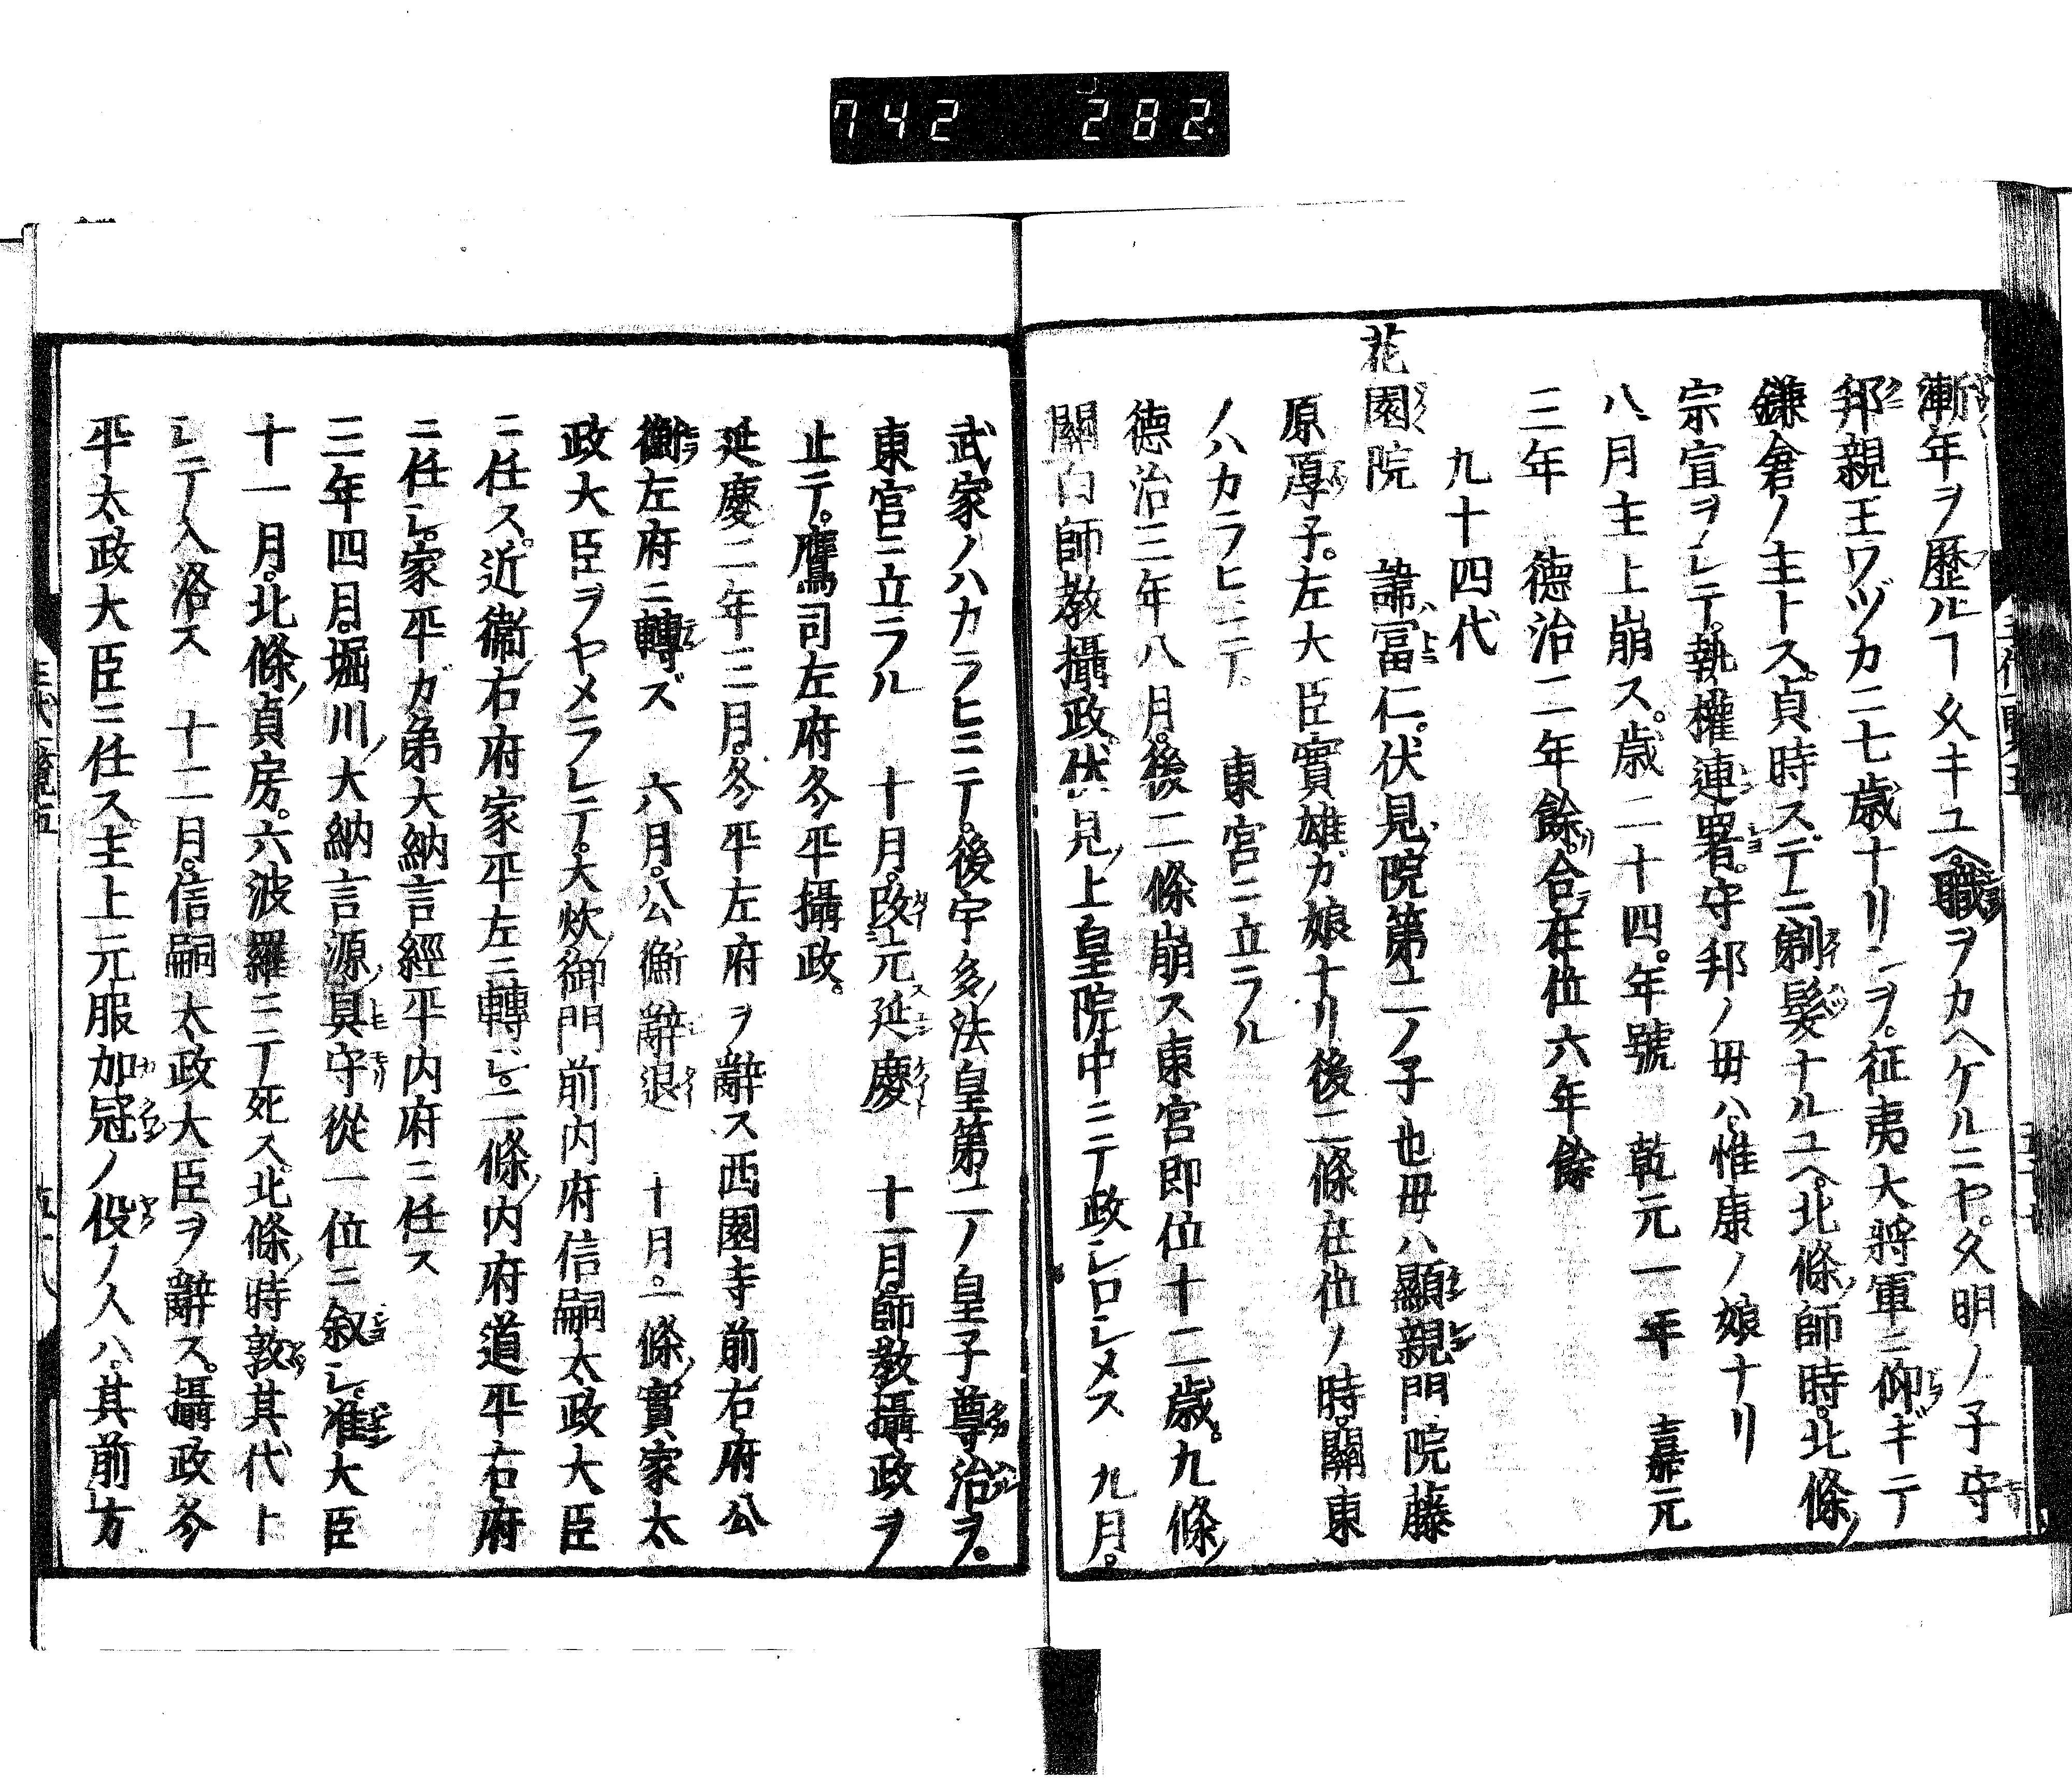 742 282
漸年ヲ歴ルヿ久キユヘ職ヲカヘケルニヤ。久明ノ子守
邦親王ワヅカニ七歳ナリシヲ。征夷大將軍ニ仰ギテ
鎌倉ノ主トス。貞時スデニ剃髮ナルユヘ。北條師時。北條
宗宣ヲシテ。執權連署。守邦ノ毋ハ。惟康ノ娘ナリ
八月主上崩ス。歳二十四。年號 乾元一年 嘉元
三年 德治二年餘。合在位六年餘
九十四代
花園院 諱富仁。伏見院第二ノ子也毋ハ顯親門院藤
原厚子。左大臣實雄ガ娘ナリ後二條在位ノ時。關東
ノハカラヒニテ。東宮ニ立ラル
德治三年八月。後二條崩ス東宮即位十二歳。九條
關白師教攝政。伏見上皇院中ニテ政シロシメス 九月。
武家ノハカラヒニテ。後宇多法皇第二ノ皇子尊治ヲ。
東宮ニ立ラル 十月。改元延慶 十一月。師教攝政ヲ
止テ。鷹司左府冬平攝政。
延慶二年三月。冬平左府ヲ辭ス西園寺前右府公
衡左府ニ轉ズ 六月。公衡辭退 十月。一條實家太
政大臣ヲヤメラレテ。大炊御門前内府信嗣太政大臣
ニ任ス。近衞右府家平左ニ轉シ。二條内府道平右府
ニ任シ。家平ガ弟大納言經平内府ニ任ス
三年四月。堀川大納言源具守從一位ニ叙シ。准大臣
十一月。北條貞房。六波羅ニテ死ス北條時敦其代ト
シテ入洛ス 十二月。信嗣太政大臣ヲ辭ス。攝政冬
平太政大臣ニ任ス。主上元服加冠ノ役ノ人ハ。其前方